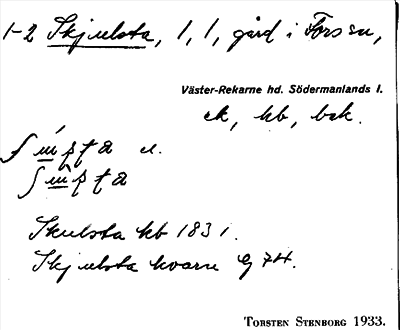 1-2 Skjulsta, 1, 1, gård i Fors sn,
Väster-Rekarne hd. Södermanlands l.
ek, kb, bsk.
el.
Skulsta kb 1831.
Skjulsta kvarn G 74.
TORSTEN STENBORG 1933.